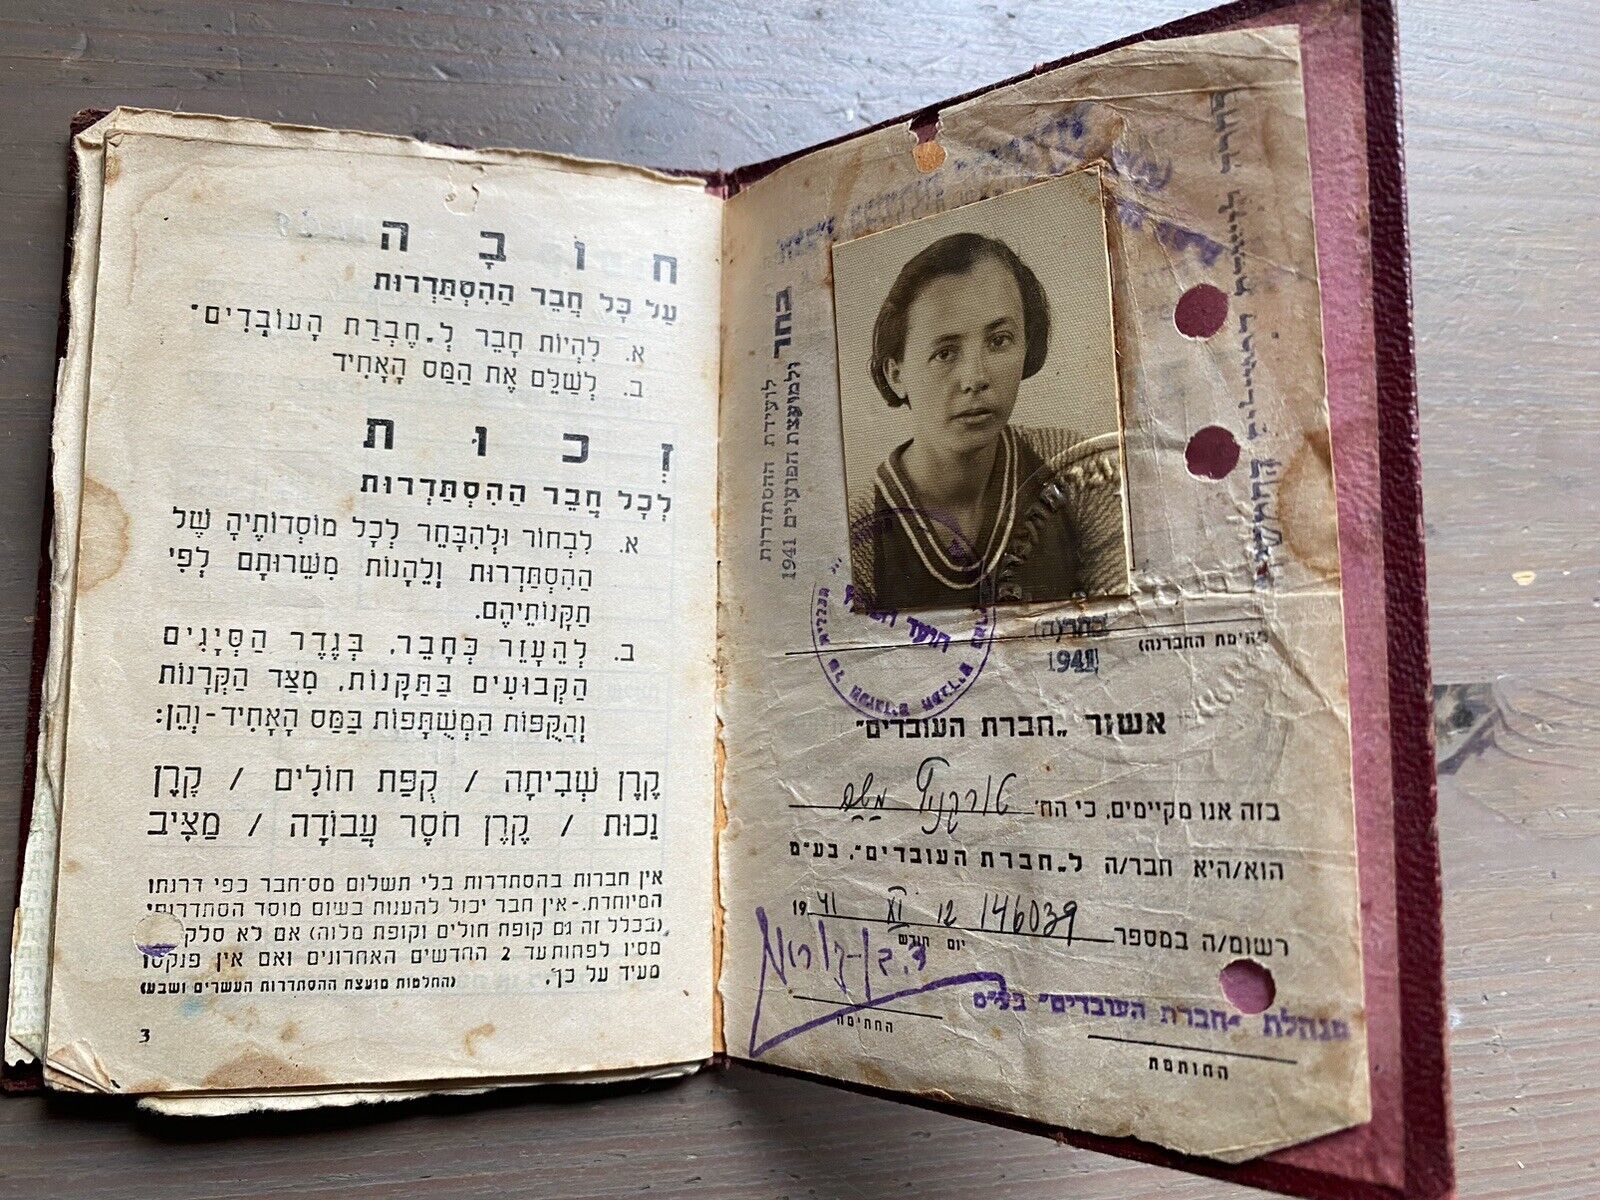 חוֹבָה
עַל כָּל חֲבֵר הַהִסְתַּדְּרוּת
א. לִהְיוֹת חָבֵר לְ„חֶבְרַת הָעוֹבְדִים"
ב. לְשַׁלֵּם אֶת הַמַּס הָאָחִיד
זְכוּת
לְכָל חֲבֵר הַהִסְתַּדְּרוּת
א. לִבְחוֹר וּלְהִבָּחֵר לְכָל מוֹסְדוֹתֶיהָ שֶׁל
הַהִסְתַּדְּרוּת וְלֵהָנוֹת מִשֵּׁרוּתָם לְפִי
תַקָּנוֹתֵיהֶם.
ב. לְהֵעָזֵר כְּחָבֵר, בְּגֶדֶר הַסְּיָגִים
הַקְּבוּעִים בַּתַּקָּנוֹת, מִצַּד הַקְּרָנוֹת
וְהַקֻּפּוֹת הַמְשֻׁתָּפוֹת בַּמַּס הָאָחִיד-וְהֵן:
קֶרֶן שְׁבִיתָה / קֻפַּת חוֹלִים / קֶרֶן
נָכוּת / קֶרֶן חֹסֶר עֲבוֹדָה / מַצִּיב
אין חברות בהסתדרות בלי תשלום מס-חבר כפי דרגתו
המיוחדת.-אין חבר יכול להענות בשום מוסד הסתדרותי
(בכלל זה גם קופת חולים וקופת מלוה) אם לא סלק
מסיו לפחות עד 2 החדשים האחרונים ואם אין פנקסו
מעיד על כך. (החלטות מועצת ההסתדרות העשרים ושבע)
3
בחר
לועידת ההסתדרות
ולמועצת הפועלים 1941
1941
(חתימת החבר/ה)
אשור „חברת העובדים"
בזה אנו מקיימים, כי הח'
הוא/היא חבר/ה ל„חברת העובדים", בע"מ
רשום/ה במספר 146039 12 XI 1941
יום חודש
מנהלת "חברת העובדים" בע"מ
החתימה
החותמת